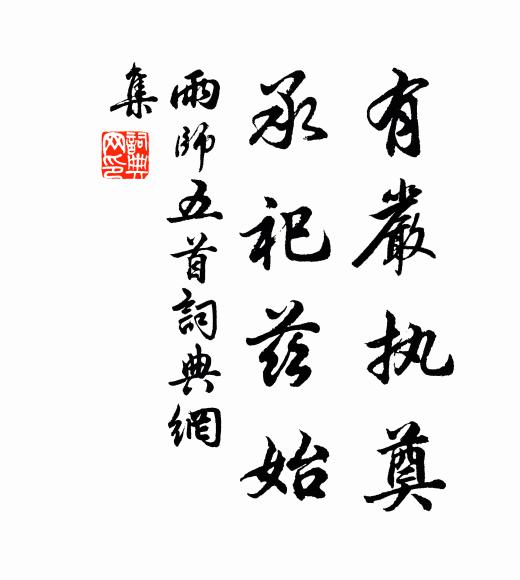 有嚴执奠
承祀茲始
雨師五首詞典網
集
詞典
网印